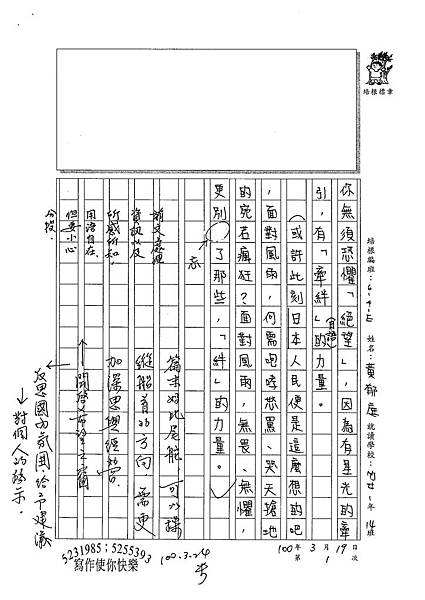 培根標章
培根編班：6-4-E 姓名：黃郁庭 就讀學校：
100年3月19日
第1次
你無須恐懼「絕望」，因為有星光的牽
引，有「牽絆」的力量。
（或許此刻日本人民便是這麼想的吧
，面對風雨，何需咆哮怒罵、哭天搶地
的宛若瘋狂？面對風雨，無畏、無懼，
更別
忘
了那些，「絆」的力量。
前文處理
資訊以及
所感所知，
用語自在，
但要小心
分段。
篇末好比尾舵，可以操
縱船首的方向，需更
加深思與經營。
開啟希望之窗
反思國內氛圍，給予建議
對個人的啟示。
100.3.24
5231985；5255393
寫作使你快樂